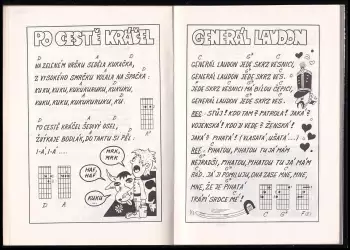 PO CESTĚ KRÁČEL
D A D
NA ZELENÉM VRŠKU SEDĚLA KUKAČKA,
Z VYSOKÉHO SMRČKU VOLALA NA ŠPAČKA:
KUKU, KUKU, KUKUKUKUKUKU, KU
KUKU, KUKU, KUKUKUKUKU, KU.
PO CESTĚ KRÁČEL ŠEDIVÝ OSEL,
ŽVÝKAJE BODLÁK, DO TAKTU SI PĚL:
I-Á, I-Á ....
MRK, MRK
HAF, HAF
KUKU
D A
GENERÁL LAUDON
GENERÁL LAUDON JEDE SKRZ VESNICI,
GENERÁL LAUDON JEDE SKRZ VES.
JEDE SKRZ VESNICI MÁ BÍLOU ČEPICI,
GENERÁL LAUDON JEDE SKRZ VES.
REF.: STŮJ! KDO TAM? PATROLA! JAKÁ?
VOJENSKÁ! KDO JI VEDE? ŽENSKÁ!
JAKÁ? PIHATÁ! (VLASATÁ, UŠATÁ...)
REF.: PIHATOU, PIHATOU TU JÁ MÁM
NEJRADŠI, PIHATOU, PIHATOU TU JÁ MÁM
RÁD. JÁ JI POMILUJU, ONA ZASE MNE, MNE,
MNE, ŽE JE PIHATÁ
TRÁPÍ SRDCE MÉ!
C G7 F